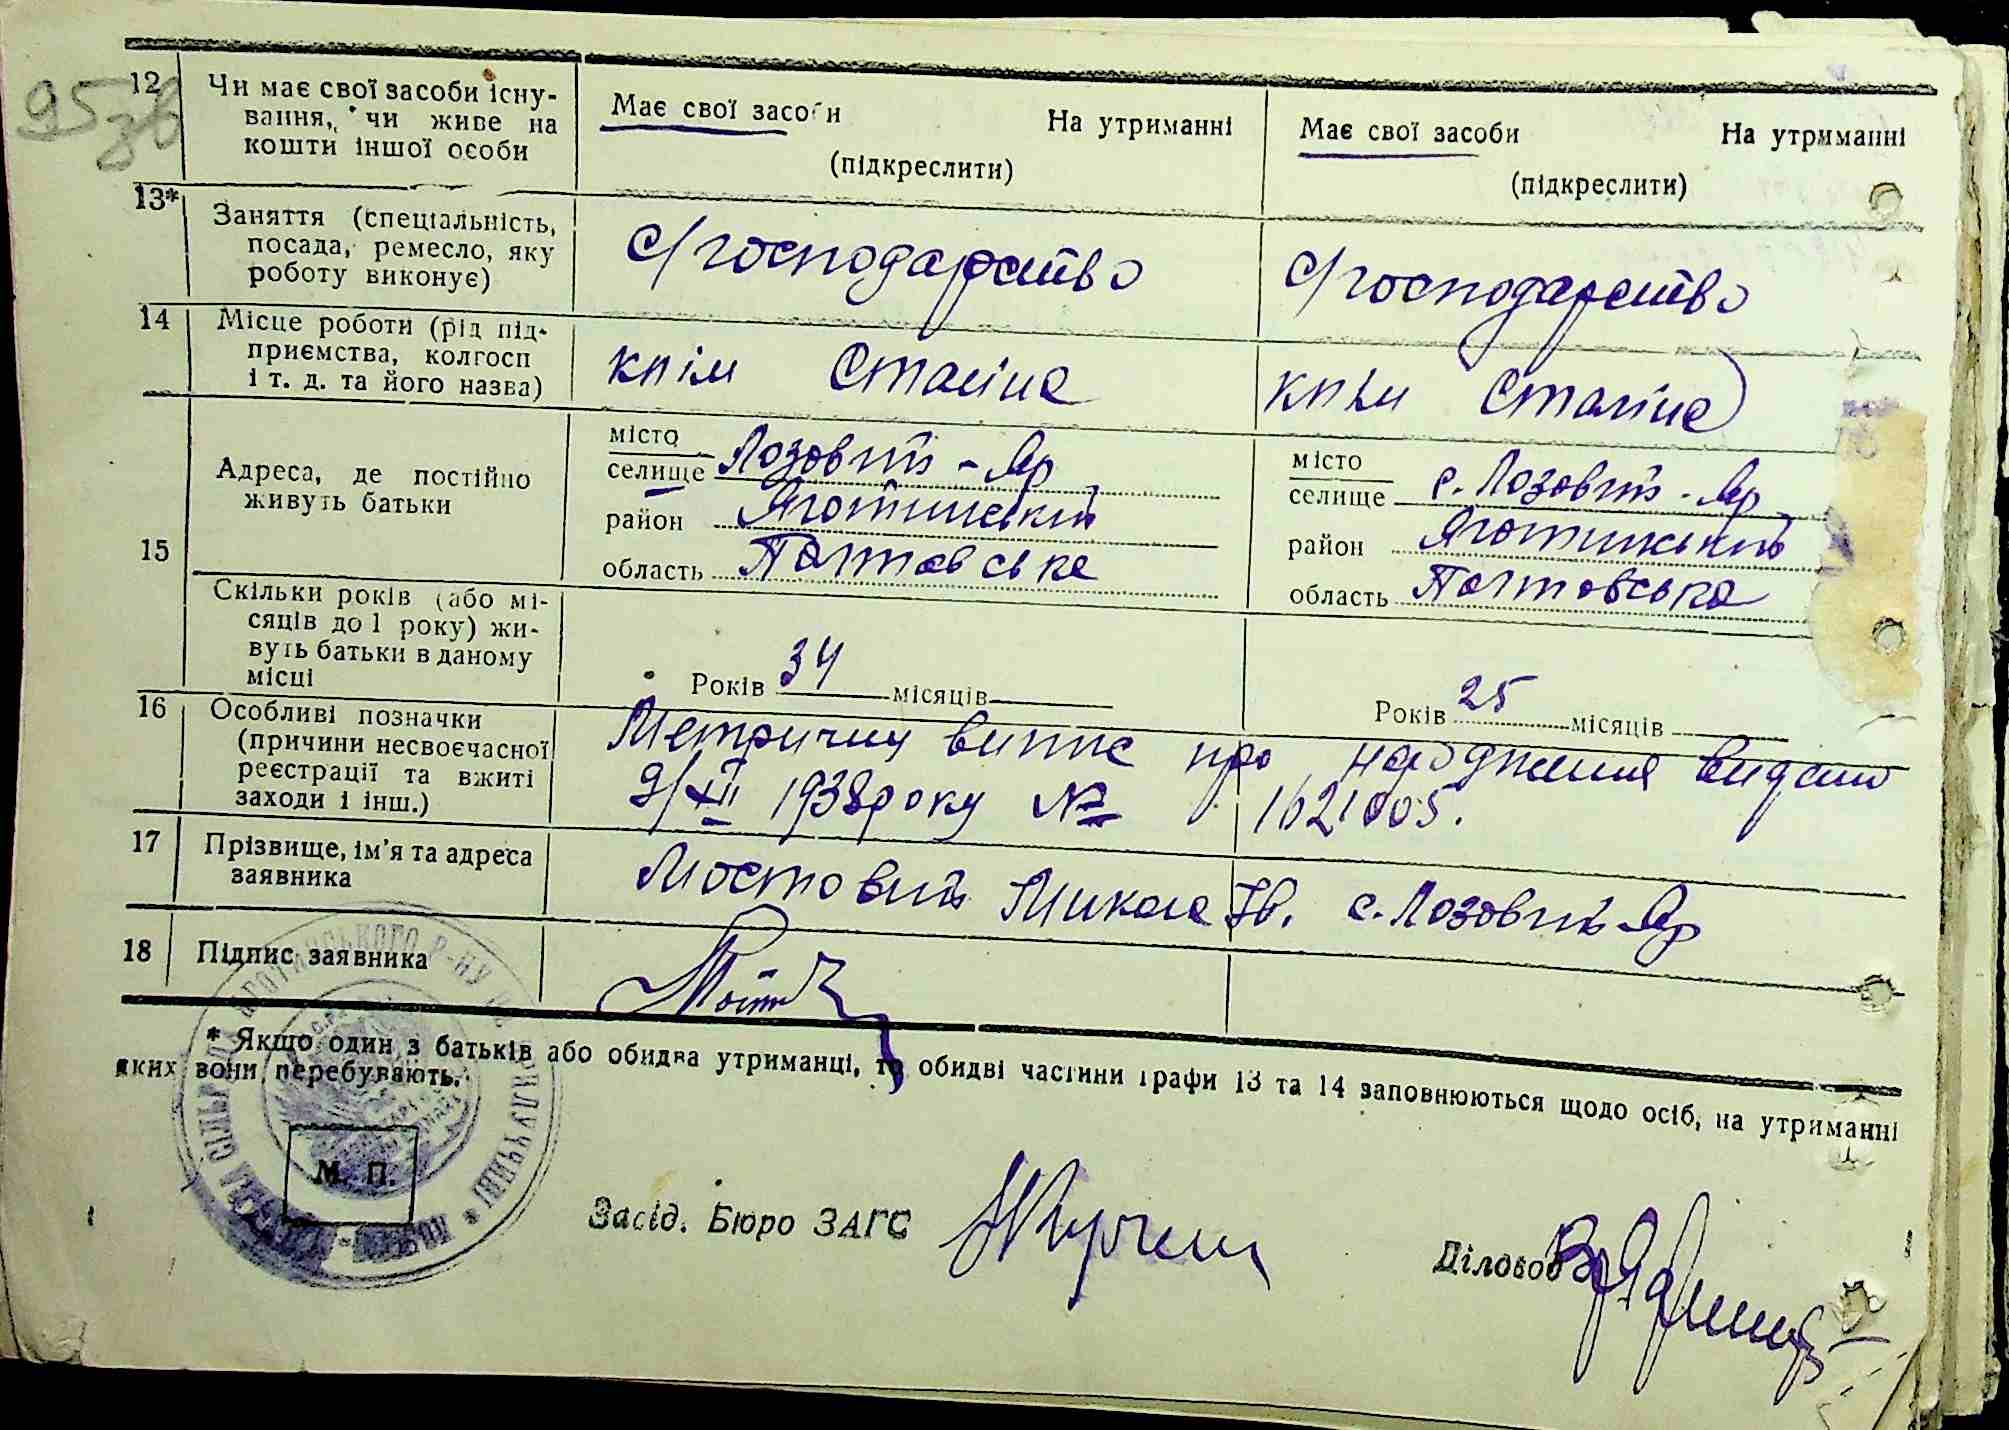 95зв
12 Чи має свої засоби існу-
вання, чи живе на
кошти іншої особи
Має свої засоби На утриманні
(підкреслити)
Має свої засоби На утриманні
(підкреслити)
13* Заняття (спеціальність,
посада, ремесло, яку
роботу виконує)
с/господарство
с/господарство
14 Місце роботи (рід під-
приємства, колгосп
і т. д. та його назва)
кпім Сталіна
кпім Сталіна
15 Адреса, де постійно
живуть батьки
місто
селище Лозовий-Яр
район Яготинський
область Полтавська
місто
селище с. Лозовий-Яр
район Яготинський
область Полтавська
Скільки років (або мі-
сяців до 1 року) жи-
вуть батьки в даному
місці
Років 34 місяців
Років 25 місяців
16 Особливі позначки
(причини несвоєчасної
реєстрації та вжиті
заходи і інш.)
Метричну випис про народження видано
9/XII 1938року № 1621005.
17 Прізвище, ім'я та адреса
заявника
Мостовий Микола Ів. с. Лозовий-Яр
18 Підпис заявника
* Якщо один з батьків або обидва утриманці, то обидві частини графи 13 та 14 заповнюються щодо осіб, на утриманні
яких вони перебувають.
М. П.
Засвід. Бюро ЗАГС
Діловод